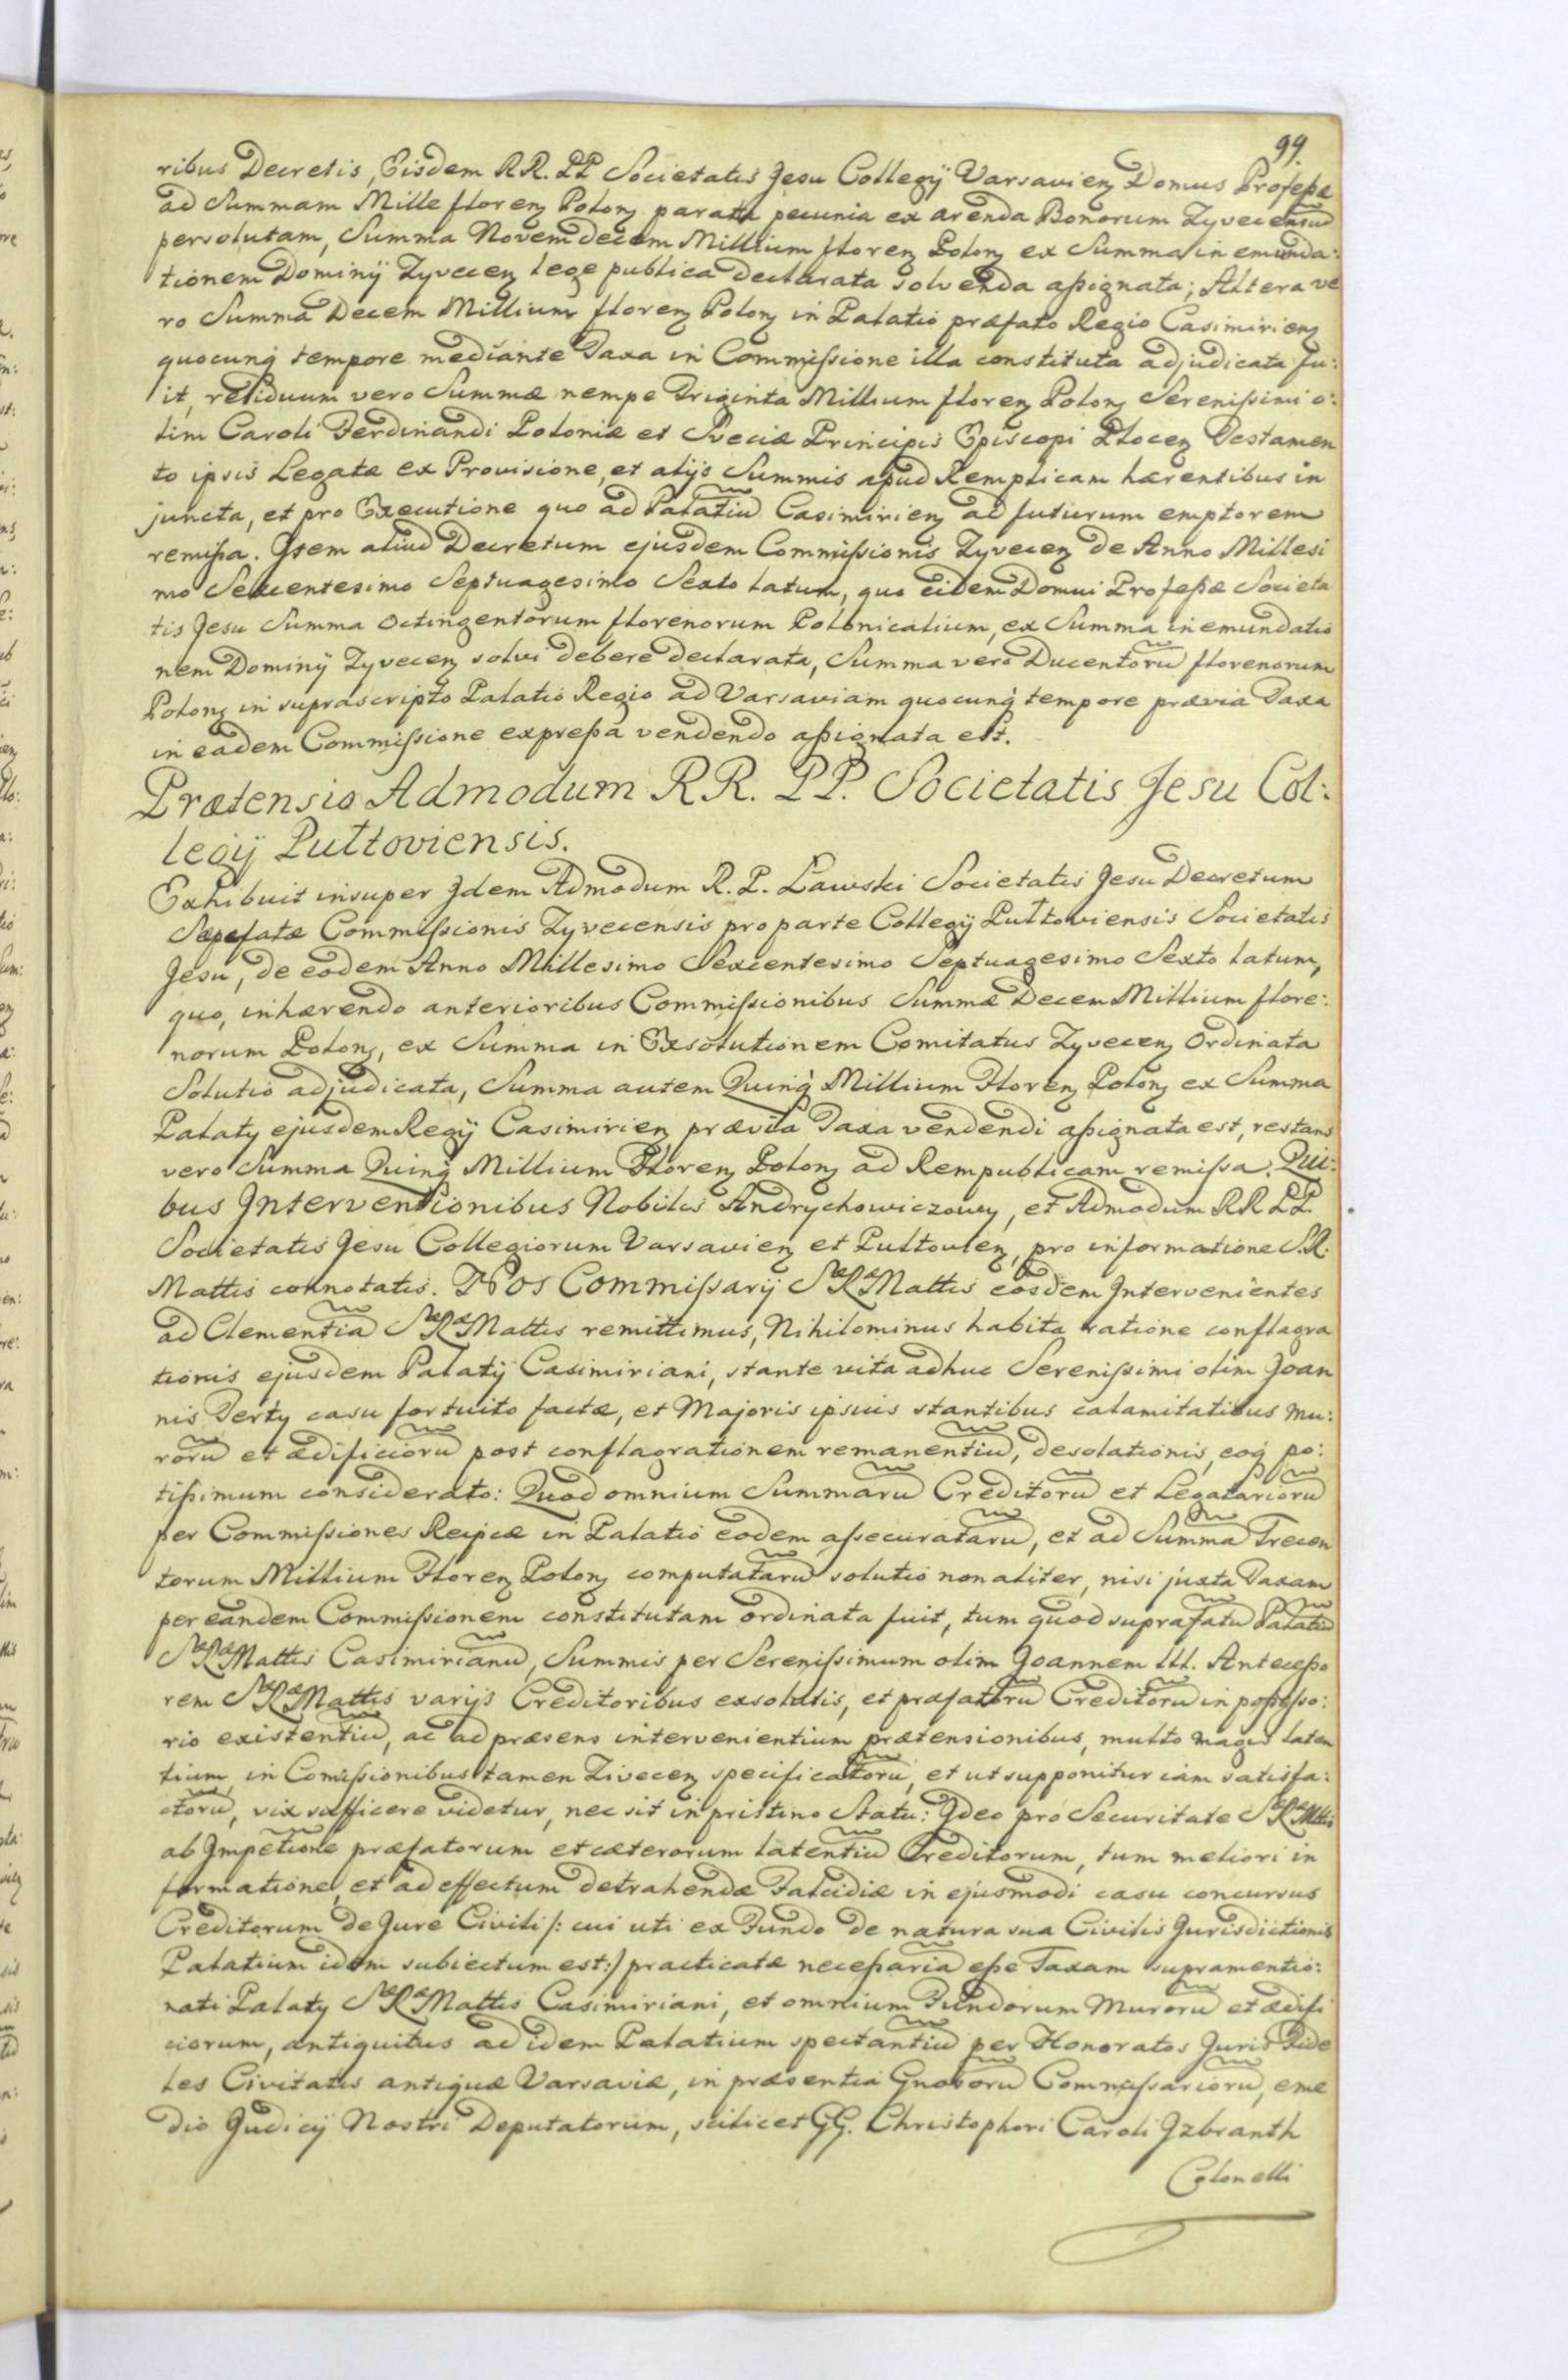 99.
ribus Decretis, Eisdem RR. PP Societatis Jesu Collegij Varsavien Domus Professæ
ad Summam Mille floren Polon parata pecunia ex arenda Bonorum Zyvecensiu
persolutam, Summa Novemdecem Millium floren Polon ex Summa in emunda:
tionem Dominij Zyvecen lege publica declarata solvenda assignata; Altera ve
ro Summa Decem Millium floren Polon in Palatio præfato Regio Casimirien
quocunq tempore mediante Taxa in Commissione illa constituta adjudicata fu:
it, residuum vero Summæ nempe Triginta Millium floren Polon Serenissimi o:
lim Caroli Ferdinandi Poloniæ et Sveciæ Principis Episcopi Plocen Testamen
to ipsis Legatæ ex Provisione, et alijs Summis apud Remplicam hærentibus in
juncta, et pro Executione quo ad Palatiu Casimirien ad futurum emptorem
remissa. Item aliud Decretum ejusdem Commissionis Zyvecen de Anno Millesi
mo Sexcentesimo Septuagesimo Sexto latum, quo eidem Domui Professæ Societa
tis Jesu Summa Octingentorum florenorum Polonicalium, ex Summa in emundatio
nem Dominij Zyvecen solvi debere declarata, Summa vero Ducentoru florenorum
Polon in suprascripto Palatio Regio ad Varsaviam quocunq tempore prævia Taxa
in eadem Commissione expressa vendendo assignata est.
Prætensio Admodum RR. PP. Societatis Jesu Col:
legij Pultoviensis.
Exhibuit insuper Idem Admodum R. P. Lawski Societatis Jesu Decretum
Sæpefatæ Commissionis Zyvecensis pro parte Collegij Pultoviensis Societatis
Jesu, de eodem Anno Millesimo Sexcentesimo Septuagesimo Sexto latum,
quo, inhærendo anterioribus Commissionibus Summæ Decem Millium flore:
norum Polon, ex Summa in Exsolutionem Comitatus Zyvecen Ordinata
Solutio adjudicata, Summa autem Quinq Millium Floren Polon ex Summa
Palaty ejusdem Regij Casimirien prævia Taxa vendendi assignata est, restans
vero Summa Quinq Millium Floren Polon ad Rempublicam remissa. Qui:
bus Interventionibus Nobilis Andrychowiczowy, et Admodum RR PP.
Societatis Jesu Collegiorum Varsavien et Pultovien, pro informatione S.R.
Mattis connotatis. Nos Commissarij SæRæMattis eosdem Intervenientes
ad Clementia SæRæMattis remittimus, Nihilominus habita ratione conflagra
tionis ejusdem Palatij Casimiriani, stante vita adhuc Serenissimi olim Joan
nis Terty casu fortuito factæ, et Majoris ipsius stantibus calamitatibus mu:
roru et ædificioru post conflagrationem remanentiu, desolationis, eoq po:
tissimum considerato: Quod omnium Summaru Creditoru et Legatarioru
per Commissiones Reipcæ in Palatio eodem assecurataru, et ad Summa Trecen
torum Millium Floren Polon computataru solutio non aliter, nisi juxta Taxam
per eandem Commissionem constitutam ordinata fuit, tum quod suprafatu Palatiu
SæRæMattis Casimirianu, Summis per Serenissimum olim Joannem III. Antecesso
rem SæRæMattis varijs Creditoribus exsolutis, et præfatoru Creditoru in possesso:
rio existentiu, ac ad præsens intervenientium prætensionibus, multo magis laten
tium in Comissionibus tamen Zivecen specificatoru, et ut supponitur iam satisfa:
ctoru, vix sufficere videtur, nec sit in pristino Statu: Ideo pro Securitate SæRæMttis
ab Impetione præfatorum et cæterorum latentiu Creditorum, tum meliori in
formatione, et ad effectum detrahendæ Falcidiæ in ejusmodi casu concursus
Creditorum de Jure Civili /: cui uti ex Fundo de natura sua Civilis Jurisdictionis
Palatium idem subiectum est:/ practicatæ necessaria esse Taxam supramentio:
nati Palaty SæRæMattis Casimiriani, et omnium Fundorum Muroru et ædifi
ciorum, antiquitus ad idem Palatium spectantiu per Honoratos Juris Fide
les Civitatis antiquæ Varsaviæ, in præsentia Gnosoru Commissarioru, e me
dio Judicij Nostri Deputatorum, scilicet GG. Christophori Caroli Izbranth
Colonelli